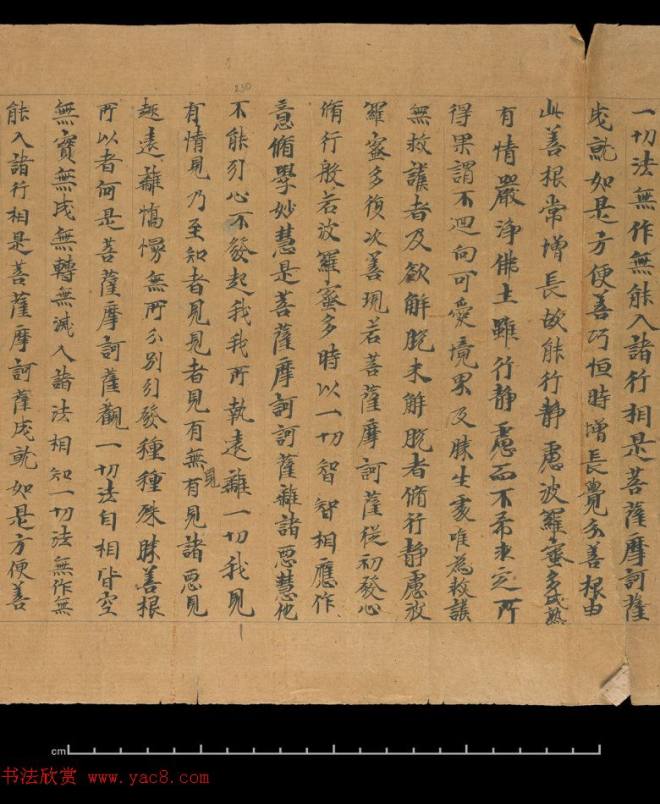 一切法無作無能入諸行相是菩薩摩訶薩
成就如是方便善巧恒時增長覺分善根由
此善根常增長故能行静慮波羅蜜多成熟
有情嚴淨佛土雖行静慮而不希求定所
得果謂不迴向可愛境界及勝生處唯為救護
無救護者及欲解脫未解脫者脩行静慮波
羅蜜多復次善現若菩薩摩訶薩從初發心
脩行般若波羅蜜多時以一切智智相應作
意脩學妙慧是菩薩摩訶訶薩離諸惡慧他
不能引心不發起我我所執遠離一切我見
有情見乃至知者見見者見有無有見諸惡見
見
趣遠離憍慢無所分別引發種種殊勝善根
所以者何是菩薩摩訶薩觀一切法自相皆空
無實無成無轉無滅入諸法相知一切法無作無
能入諸行相是菩薩摩訶薩成就如是方便善
230
cm
书法欣赏 www.yac8.com